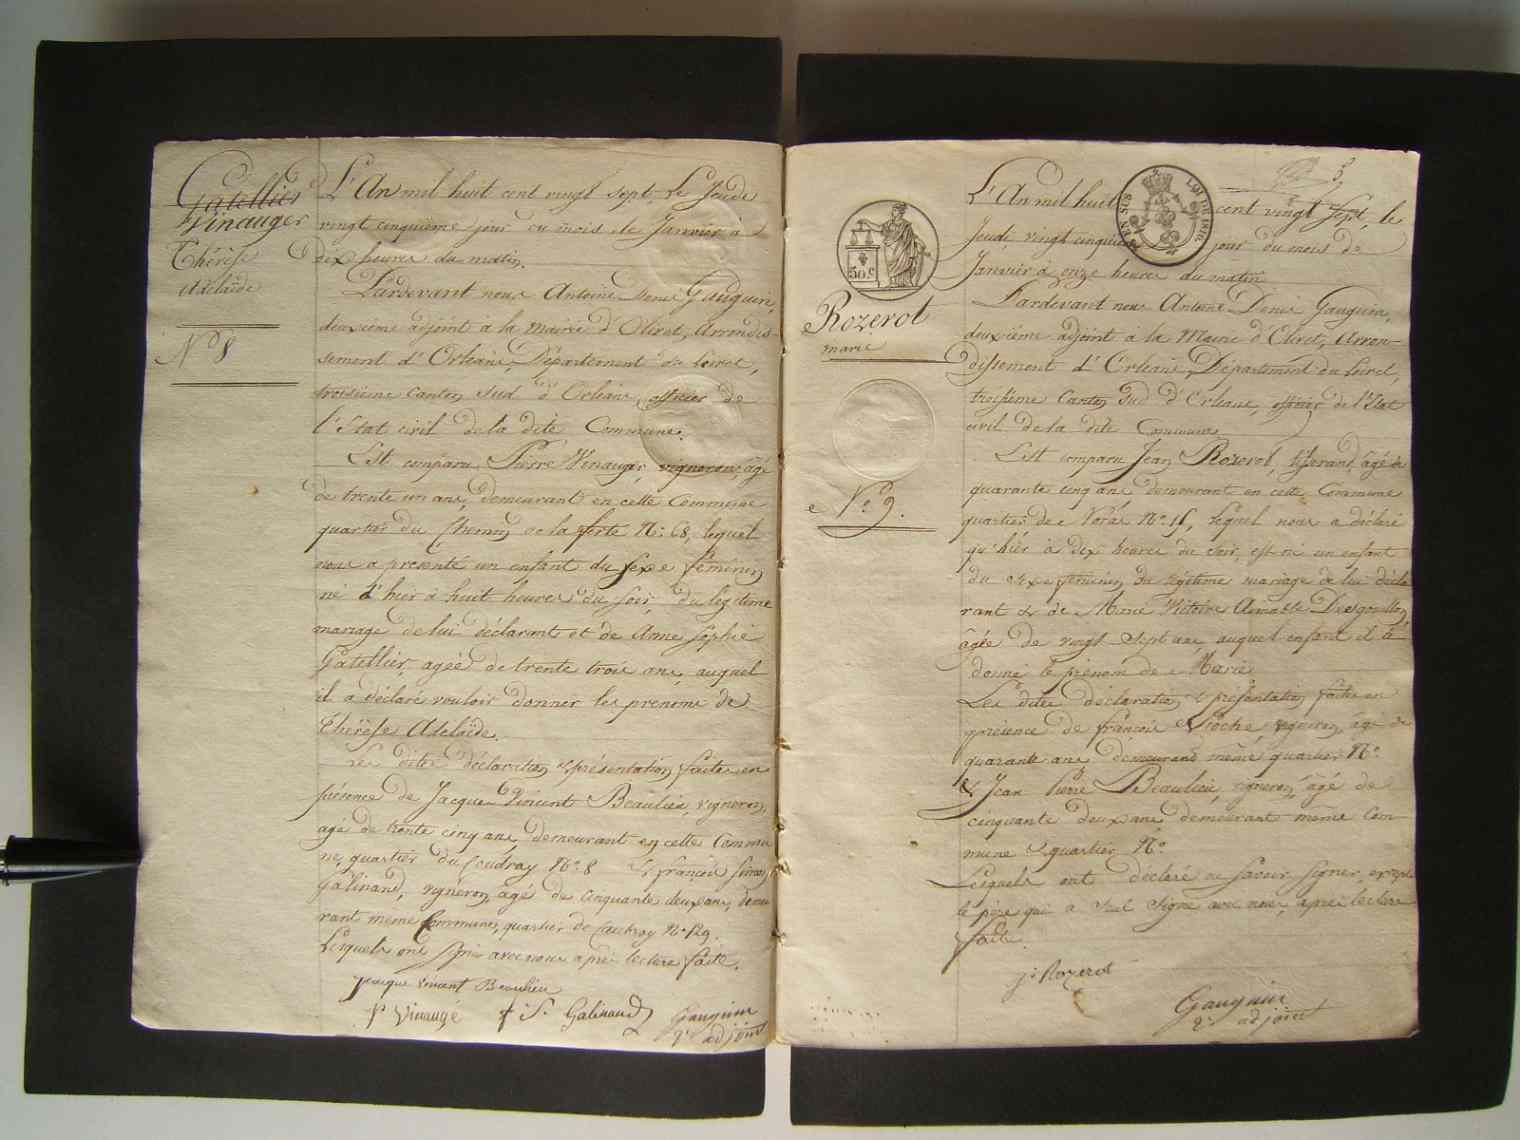 Gatellier
Vinauger
Thérèse
Adelaïde
N° 8
L'An mil huit cent vingt sept, le Jeudi
vingt cinquième jour du mois de Janvier à
dix heures du matin,
Pardevant nous Antoine Denis Gauguin,
deuxième adjoint à la Mairie d'Olivet, Arrondis-
sement d'Orléans, Département du Loiret,
troisième Canton Sud d'Orléans, officier de
l'Etat civil de la dite Commune.
Est comparu Pierre Vinauger, vigneron, âgé
de trente un ans, demeurant en cette Commune
quartier du Chemin de la ferté N° 68, lequel
nous a présenté un enfant du sexe féminin
né d'hier à huit heures du soir, du légitime
mariage de lui déclarant et de Anne Sophie
Gatellier, agée de trente trois ans, auquel
il a déclaré vouloir donner les prénoms de
Thérèse Adelaïde.
Les dites déclaration & présentation faites en
présence de Jacque Vincent Beaulieu, vigneron,
agé de trente cinq ans, demeurant en cette Commu
ne, quartier du Coudray N° 8 & françois
Galinand, vigneron, âgé de cinquante deux ans, demeu
rant meme Commune, quartier de Caubray N° 129.
Lesquels ont signé avec nous après lecture faite.
Jacque vincent Beaulieu
P Vinaugé
f. S. Galinand
Gauguin
2e adjoint
5
50 c
EN SUS
Rozerot
marie
N° 9.
L'An mil huit cent vingt Sept, le
Jeudi vingt cinquième jour du mois de
Janvier à onze heures du matin
Pardevant nous Antoine Denis Gauguin,
deuxième adjoint à la Mairie d'Olivet, Arron-
dissement d'Orléans, Département du Loiret,
troisième Canton Sud d'Orléans, officier de l'Etat
civil de la dite Commune
Est comparu Jean Rozerot, tisserand, âgé de
quarante cinq ans demeurant en cette Commune
quartier de N° 15, lequel nous a déclaré
qu'hier à dix heures du soir, est né un enfant
du sexe féminin, du légitime mariage de lui décla
rant & de Marie Victoire Aimable
âgée de vingt sept ans, auquel enfant il a
donné le prénom de Marie
Les dites déclaration & présentation faites en
présence de françois vigneron, âgé de
quarante ans demeurant même quartier N°
& Jean Pierre Beaulieu, vigneron, âgé de
cinquante deux ans demeurant même Com-
mune & quartier N°
Lesquels ont déclaré ne savoir signer, excepté
le père qui a seul signé avec nous, après lecture
faite.
J. Rozerot
Gauguin
2e adjoint